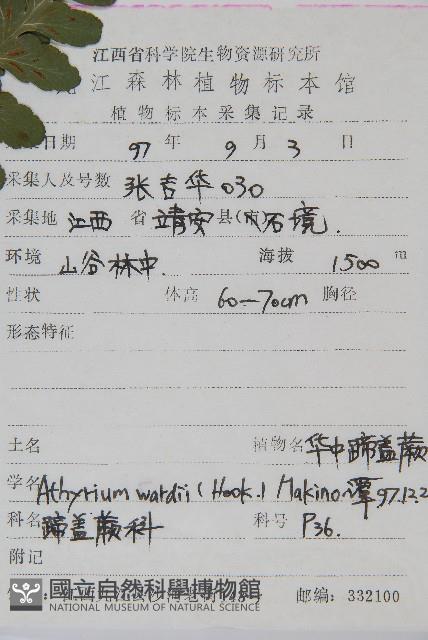 江西省科学院生物资源研究所
九江森林植物标本馆
植物标本采集记录
日期 97 年 9 月 3 日
采集人及号数 张吉华 030
采集地 江西 省 靖安 县(市) 石境.
环境 山谷林中. 海拔 1500 m
性状 体高 60—70cm 胸径
形态特征
土名 植物名 华中蹄盖蕨
学名 Athyrium wardii (Hook.) Makino 谭 97.12.2
科名 蹄盖蕨科 科号 P36.
附记
國立自然科學博物館
NATIONAL MUSEUM OF NATURAL SCIENCE
邮编: 332100